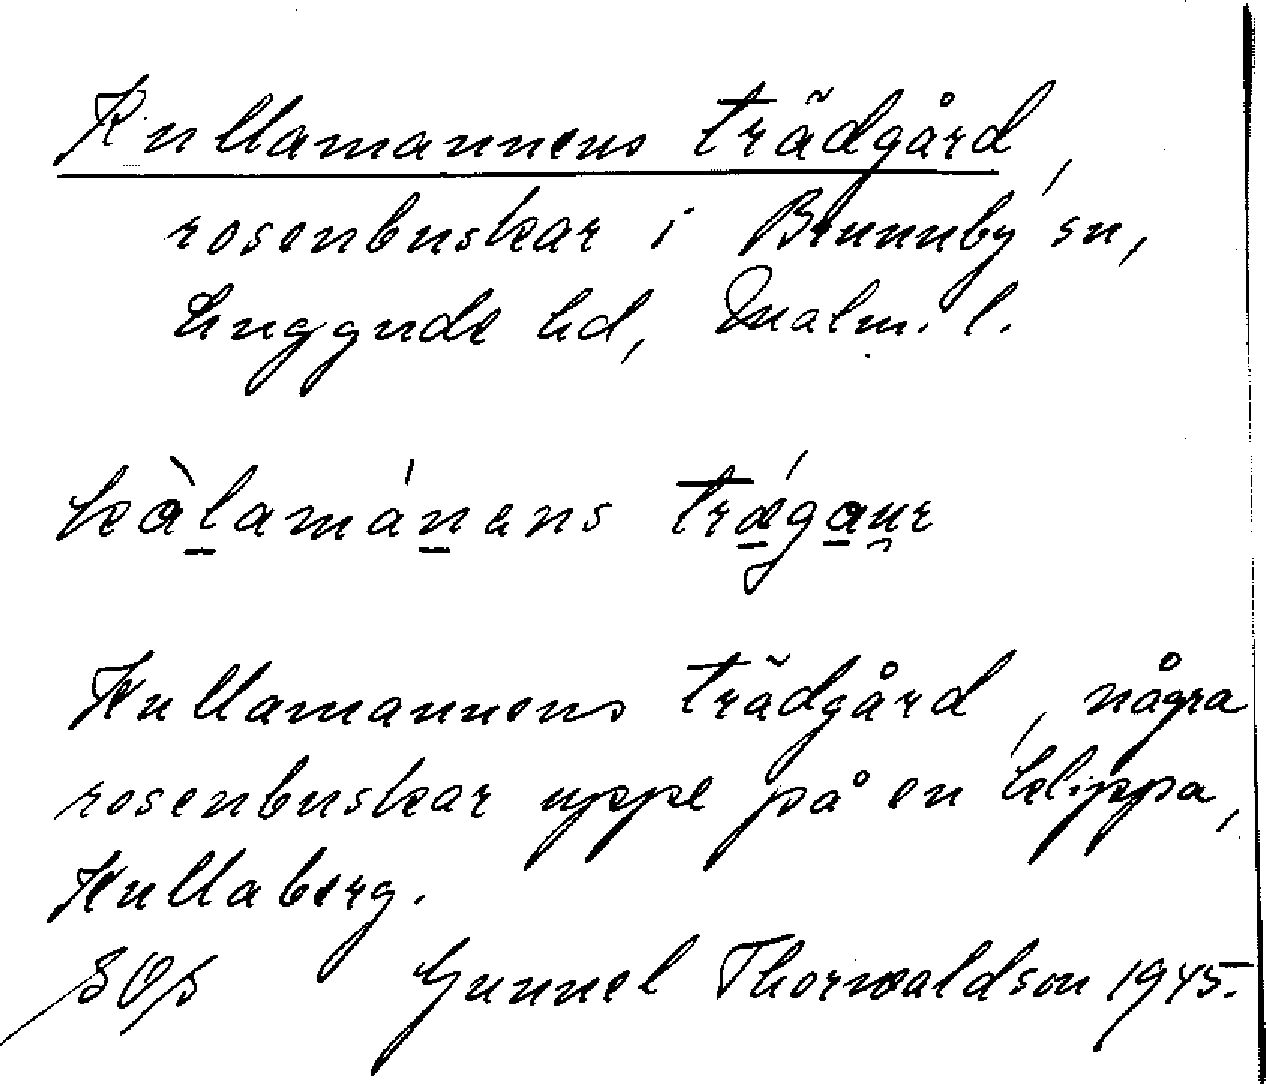 Kullamannens trädgård,
rosenbuskar i Brunnby sn,
Luggude hd, Malm. l.
kàlamánens trǽgau̯r
Kullamannens trädgård, några
rosenbuskar uppe på en klippa,
Kullaberg.
Gunnel Thorwaldson 1945.